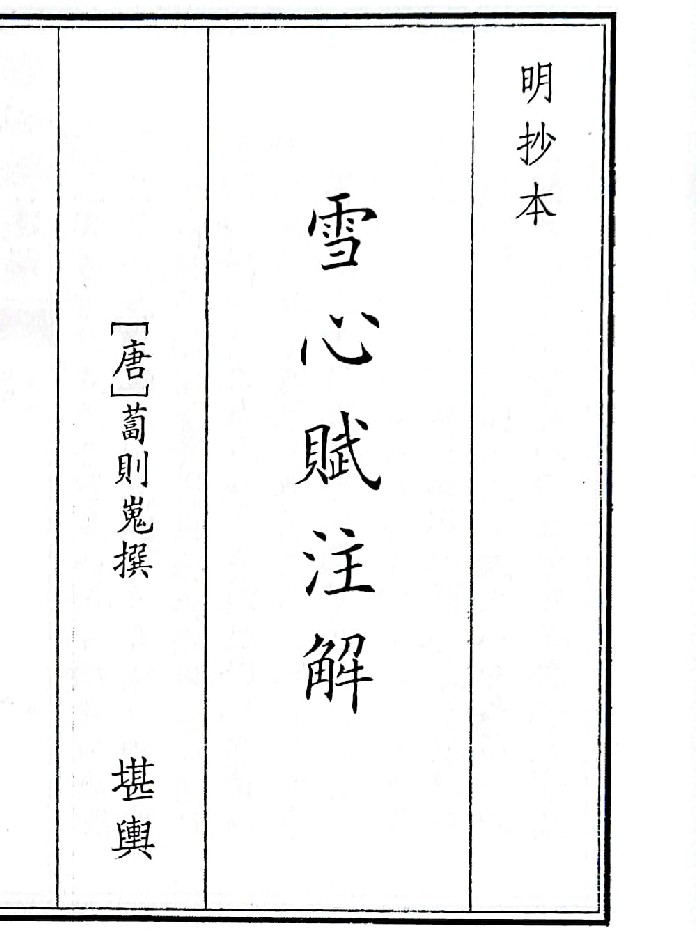 明抄本
雪心賦注解
[唐]葍則嵬撰
堪輿